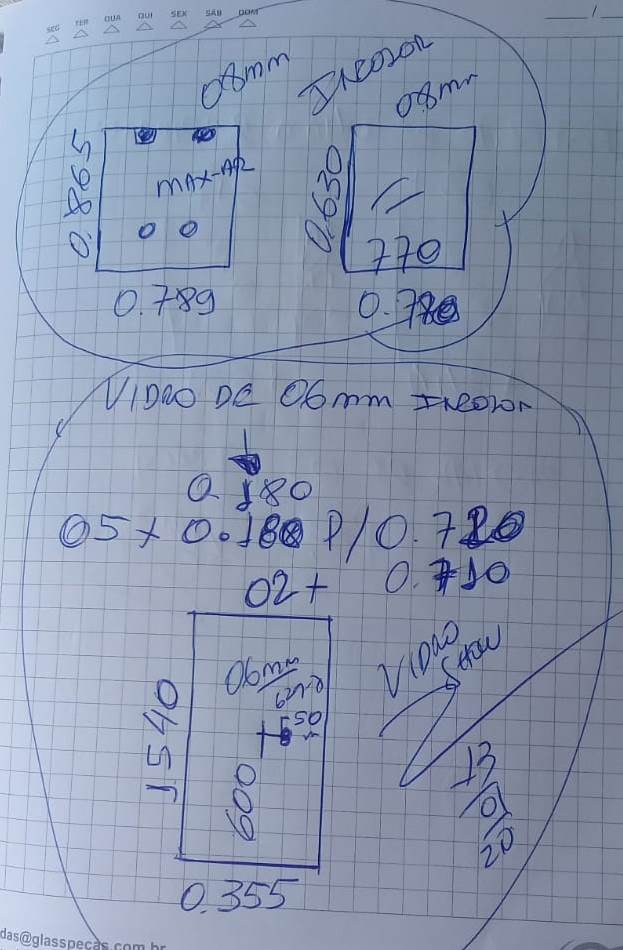 SEG TER QUA QUI SEX SÁB DOM
/
08mm
INCOLOR
08mm
0.865
MAX-AR
0.789
0.630
770
VIDRO DE 06mm INCOLOR
0.180
05+ 0.180 P/ 0.720
02+ 0.710
1.540
06mm
+
50
600
0.355
VIDRO
SHOW
13
01
20
das@glasspeças.com.br